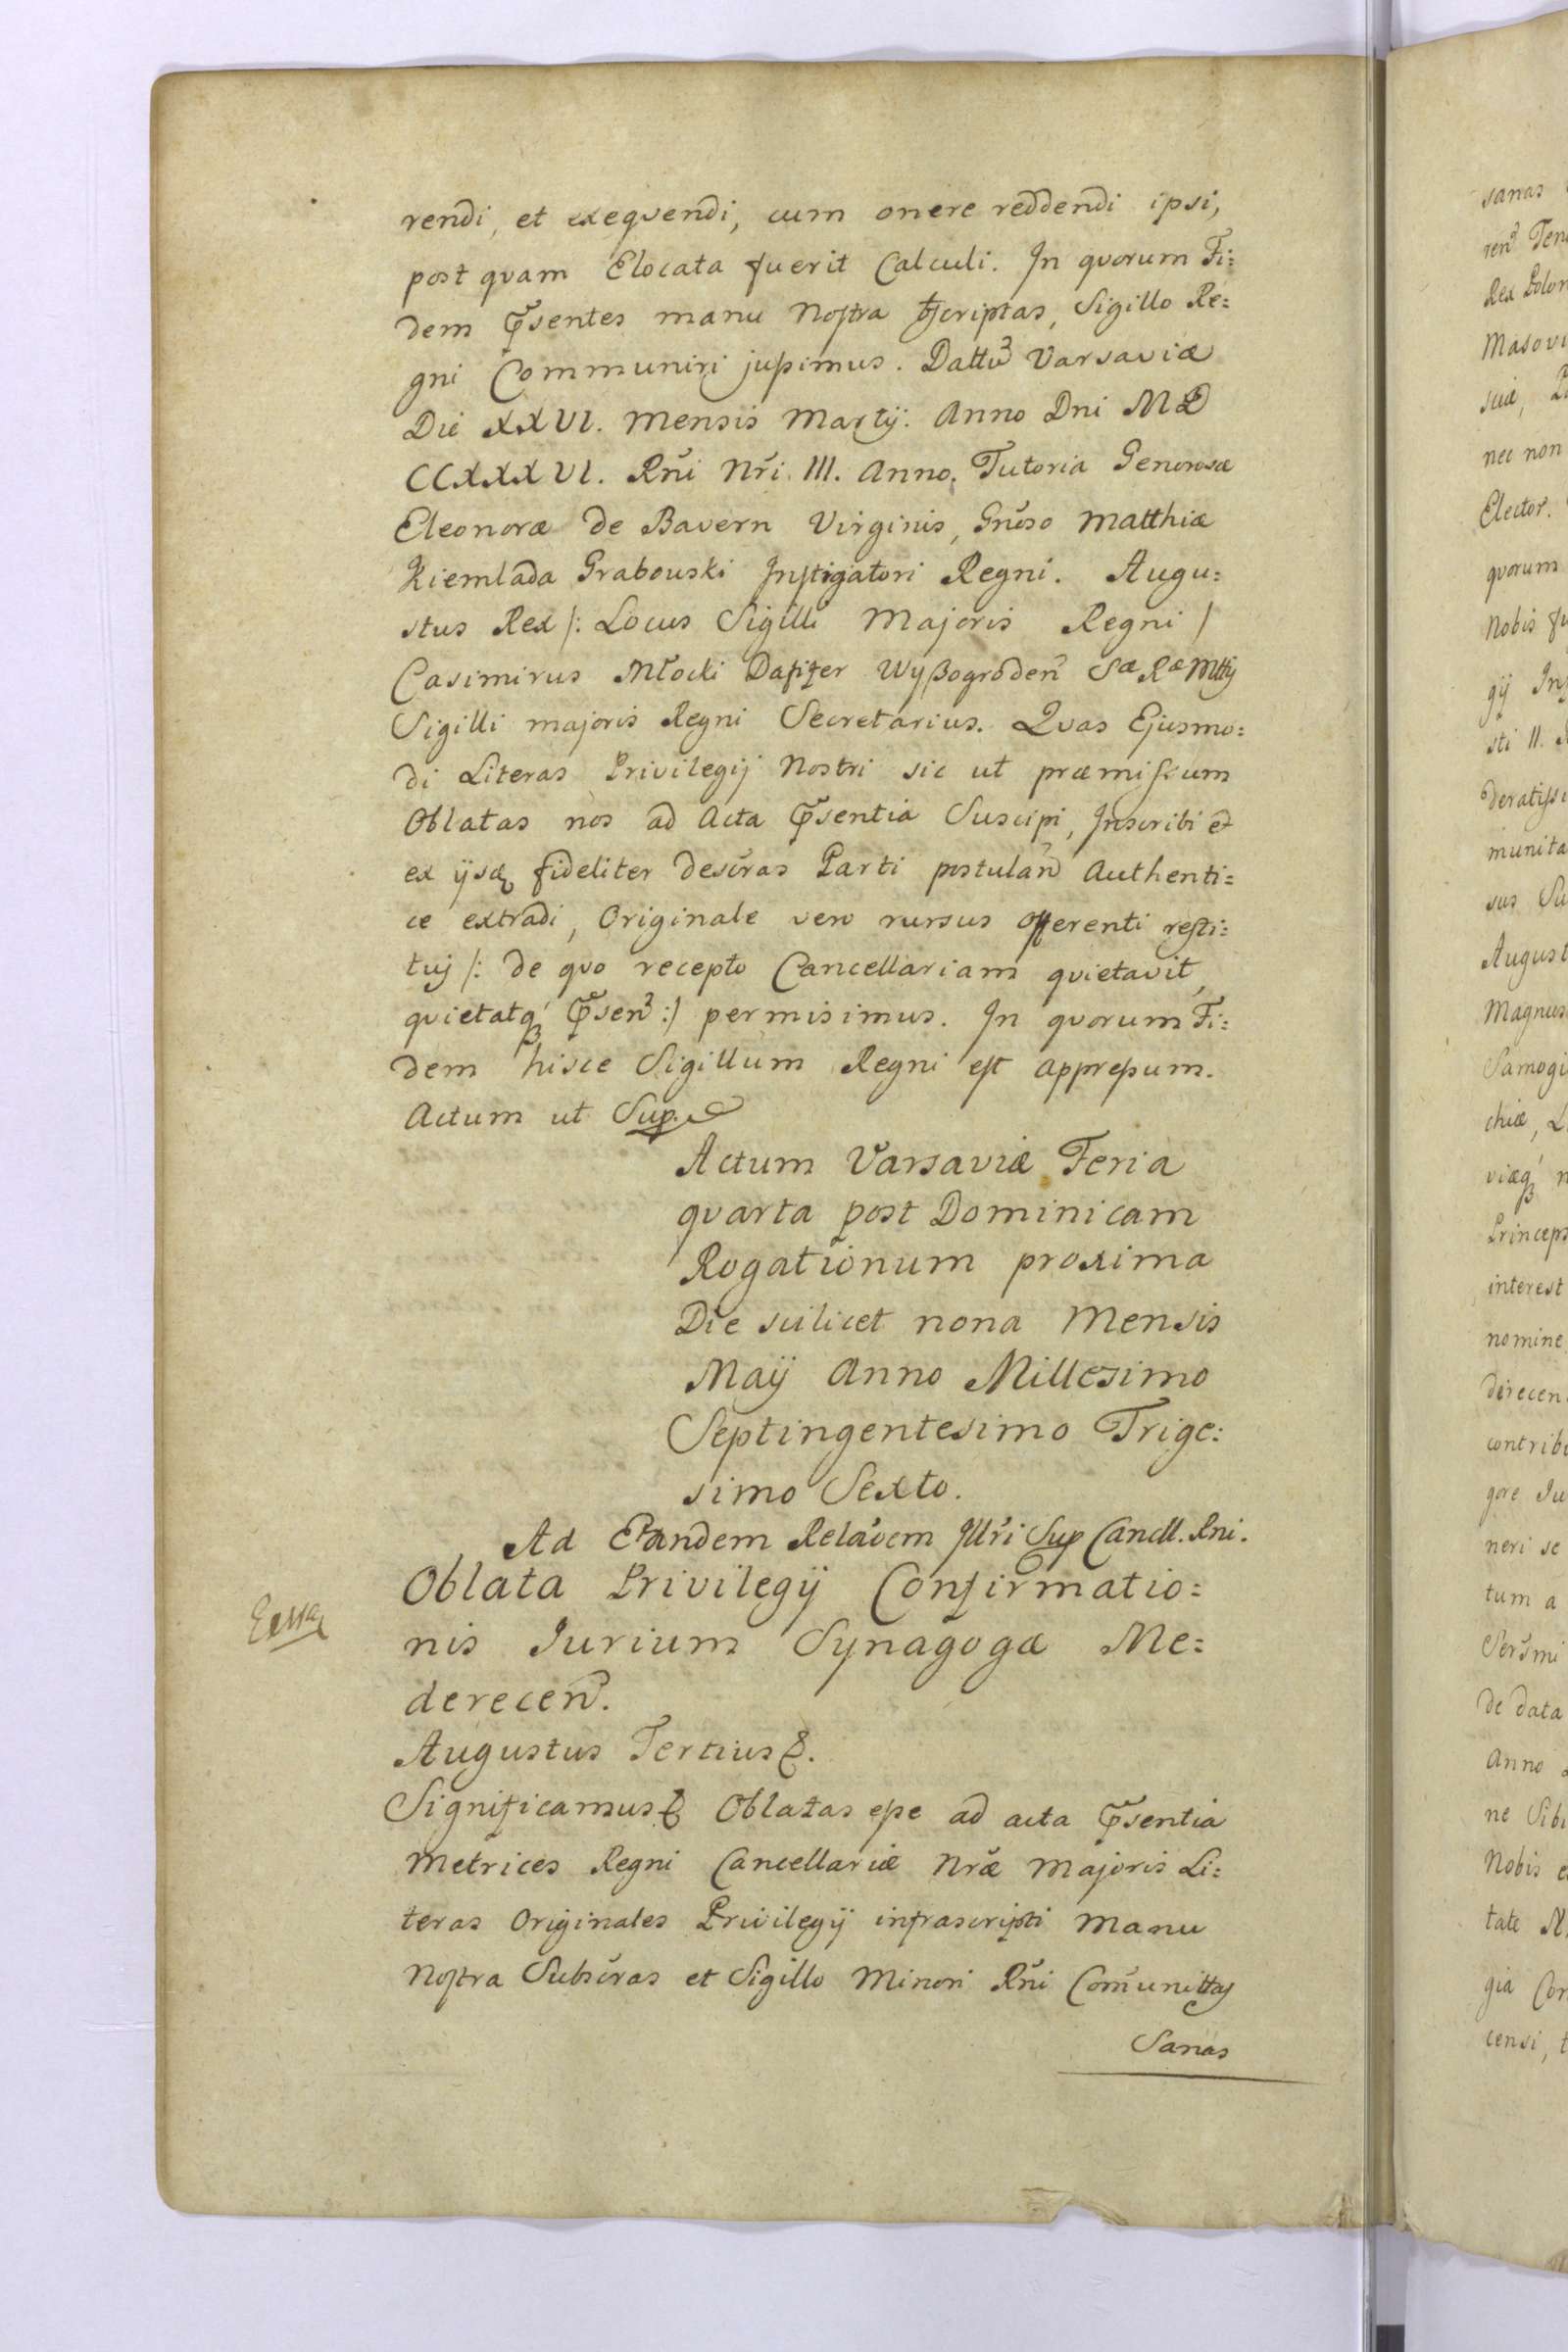 rendi, et exeqvendi, cum onere reddendi ipsi,
post qvam Elocata fuerit Calculi. In qvorum Fi:
dem Pñsentes manu Nostra sscriptas, Sigillo Re:
gni Communiri jussimus. Dattũ Varsaviæ
Die XXVI. Mensis Martij. Anno Dni MD
CCXXXVI. Rñi Nři III. Anno. Tutoria Generosæ
Eleonoræ de Bavern Virginis, Gñoso Matthiæ
Ziemlada Grabouski Instigatori Regni. Augu:
stus Rex /: Locus Sigilli Majoris Regni /
Casimirus Młocki Dapifer Wyßogroden̄ Sæ Ræ Mttij
Sigilli majoris Regni Secretarius. Qvas Ejusmo:
di Literas Privilegij Nostri sic ut præmissum
Oblatas nos ad Acta Pñsentia Suscipi, Inscribi et
ex ijsdẽ fideliter descr̃as Parti postulañ Authenti:
ce extradi, Originale vero rursus offerenti resti:
tuj /: de qvo recepto Cancellariam qvietavit,
qvietatq́ Pñsen̄ :/ permisimus. In qvorum Fi:
dem hisce Sigillum Regni est appressum.
Actum ut Sup.
Actum Varsaviæ Feria
qvarta post Dominicam
Rogationum proxima
Die scilicet nona Mensis
Maÿ Anno Millesimo
Septingentesimo Trige:
simo Sexto.
Ad Eandem Relãoem Illři Sup Cancll. Rni.
Oblata Privilegij Confirmatio:
nis Jurium Synagogæ Me:
derecen̄.
Augustus Tertius &.
Significamus & Oblatas esse ad acta Pñsentia
Metrices Regni Cancellariæ Nræ Majoris Li:
teras Originales Privilegij infrascripti Manu
Nostra Subscr̃as et Sigillo Minori Rñi Com̃unittas
Sanas
sanas
Rex Polon
Masovi
nec non
Elector.
qvorum
Nobis fu
sti II.
munita
sus Su
August
Magnus
Samogi
chiæ, L
viæq́ n
Princeps
interest
nomine
direcen
contribu
gore Ju
neri se
tum a
Serm̃i
de data
Anno
ne Sibi
Nobis e
tate M
gia Con
censi, t